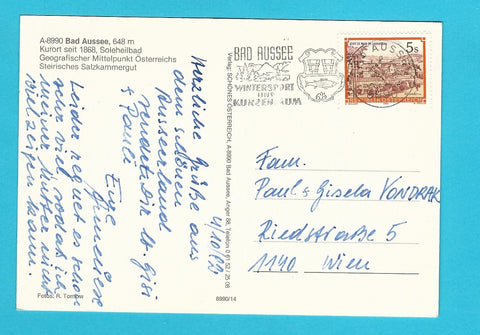 A-8990 Bad Aussee, 648 m
Kurort seit 1868, Soleheilbad
Geografischer Mittelpunkt Österreichs
Steirisches Salzkammergut
Herzliche Grüße aus
dem schönen
Ausseerland
sendet Dir lb. Gisi
& Pauli
Eure
Leider regnet es schon
sehr viel sodaß ich
meiner Mutter nicht
viel zeigen kann.
Fotos: R. Tomlow
Verlag: SCHÖNES ÖSTERREICH, A-8990 Bad Aussee, Anger 88, Telefon 0 61 52 / 25 08
8990/14
BAD AUSSEE
WINTERSPORT
UND
KURZENTRUM
AUSSEE
5s
REPUBLIK ÖSTERREICH
Fam.
Paul & Gisela VONDRAK
Riedstraße 5
1140 Wien